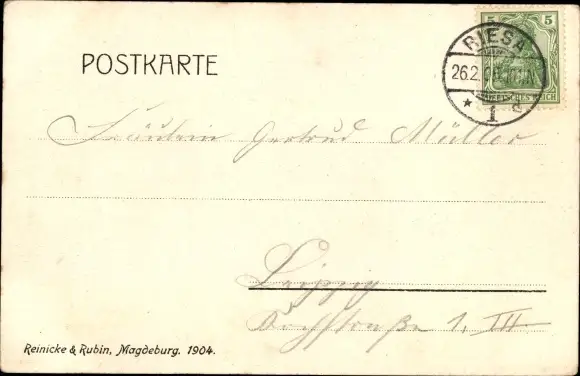 POSTKARTE
5
RIESA
26.2.
* 1 c
DEUTSCHES REICH
Fräulein Gertrud Müller
Leipzig
1, III
Reinicke & Rubin, Magdeburg. 1904.